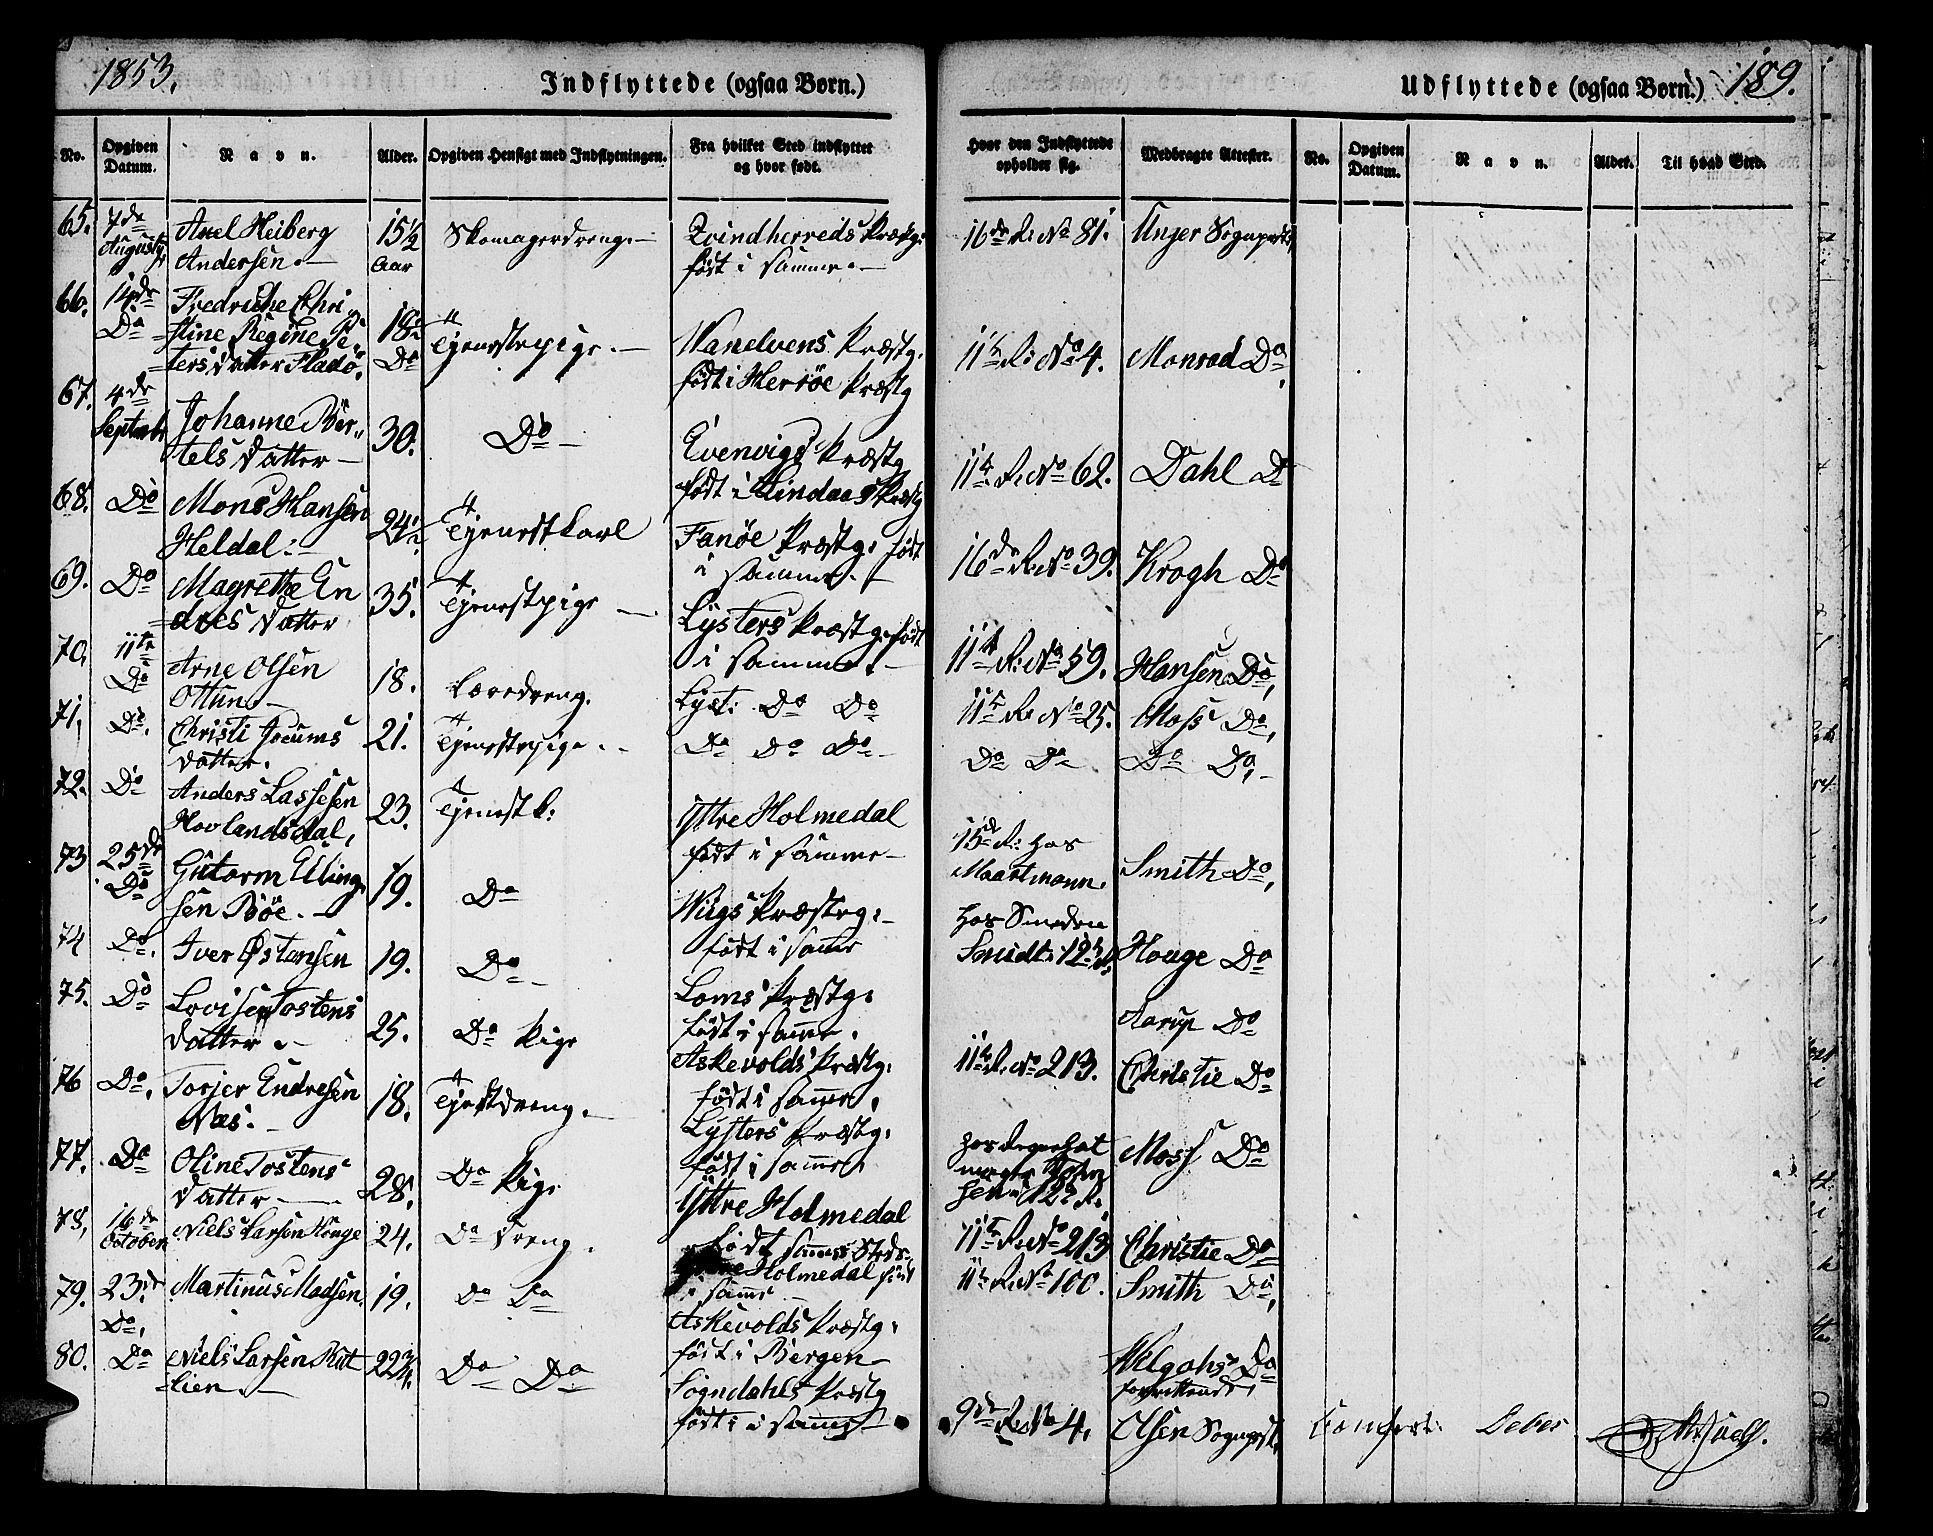 1853.
Indflyttede (ogsaa Børn.)
Udflyttede (ogsaa Børn.)
189.
No. Opgiven Datum. Navn. Alder. Opgiven Hensigt med Indflytningen. Fra hvilket Sted indflyttet og hvor født. Hvor den Indflyttede opholder sig. Medbragte Attester. No. Opgiven Datum. Navn. Alder. Til hvad Sted.
65. 7de August Axel Heiberg Andersen. 15½ Aar Skomagerdreng Qvindherreds Præstg: født i samme. 16de R. No 81. Unger Sognepr
66. 14de Do Fredriche Chri
stine Regine Pe
ters Datter Fladø. 18½ Do Tjenestepige. Wanelvens Præstg. født i Herröe Præstg 11te R: No 4. Monrad Do
67. 4de Septembr Johanne Ber
tels Datter 30. Do Evenvigs Præstg født i Lindaas Præstg 11te R: No 62. Dahl Do
68. Do Mons Hansen
Heldal. 24½ Tjenestkarl Fanöe Præstg: født i samme. 16de R. No 39. Krogh Do
69. Do Magrethe En
dres Datter 35. Tjenestpige Lysters Præstg. født i samme. 11te R: No 59. Hansen Do,
70. 11te Do Arne Olsen
Ottum. 18. Læredreng. Lyst: Do Do 11te R. No 25. Moss Do,
71. Do. Christi Joeums
Datter. 21. Tjenestepige. Do Do Do Do Do Do Do,
72. Do Anders Lassesen
Hovlandsdal, 23. Tjenestk: Yttre Holmedal født i samme 15de R: hos Maartmann. Smith Do,
73 25de Do Gutorm Elling
sen Böe. 19. Do Wiigs Præstg: født i samme hos Smeden Smidt. 12te R. Houge Do
74 Do. Iver Østensen 19. Do Loms Præstg: født i samme. Aarup Do
75. Do Lovise Tostens
Datter. 25. Do Pige Askevolds Præstg: født i samme. 11te R. No 213. Christie Do
76 Do. Torjer Endresen
Næs. 18. Tjestdreng. Lysters Præstg: født i samme. hos Moss Do
77. Do Oline Tostens
Datter 28. Do Pige Yttre Holmedal født samme Steds 11te R. No 213 Christie Do
78, 16de October Niels Larsen Houge 24. Do Dreng. Holmedal født i samme 11te R. No 100. Smith Do,
79. 23de Do, Martinus Madsen 19. Do Do Askevolds Præstg: født i Bergen Do
80. Do Niels Larsen Rut
lien. 22¾ Do Do Sogndahls Præstg født i samme 9de R. No 4. Olsen Sognepst.